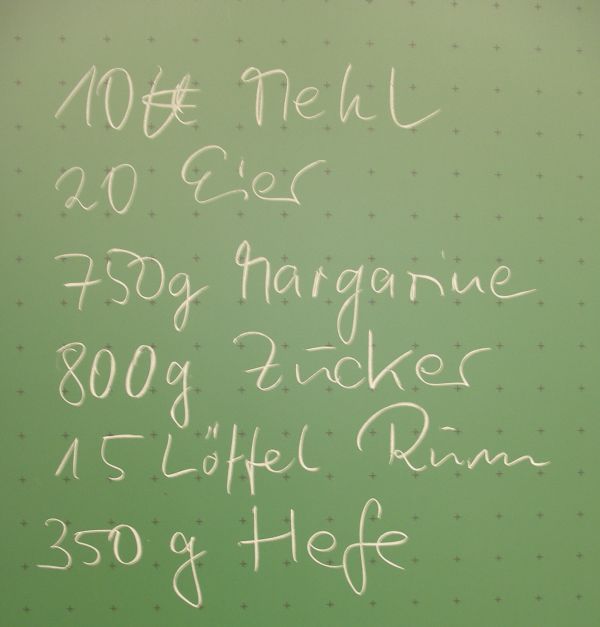 10 ℔ Mehl
20 Eier
750g Margarine
800g Zucker
15 Löffel Rum
350 g Hefe